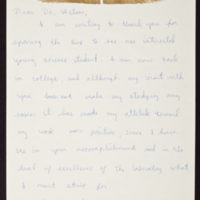 Dear Dr. Nelson,
I am writing to thank you for
sparing the time to see an interested
young science student. I am now back
in college and although my visit with
you has not made my studying any
easier it has made my attitude toward
my work more positive, since I have
seen in your accomplishment and in the
of excellence of the laboratory what
I must strive for